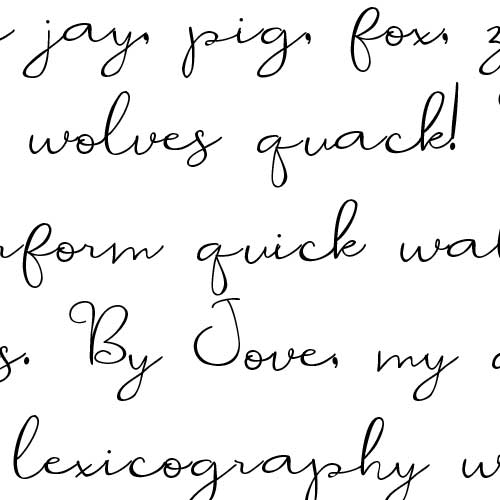 jay, pig, fox, z
wolves quack!
rform quick wal
s. By Jove, my
lexicography w